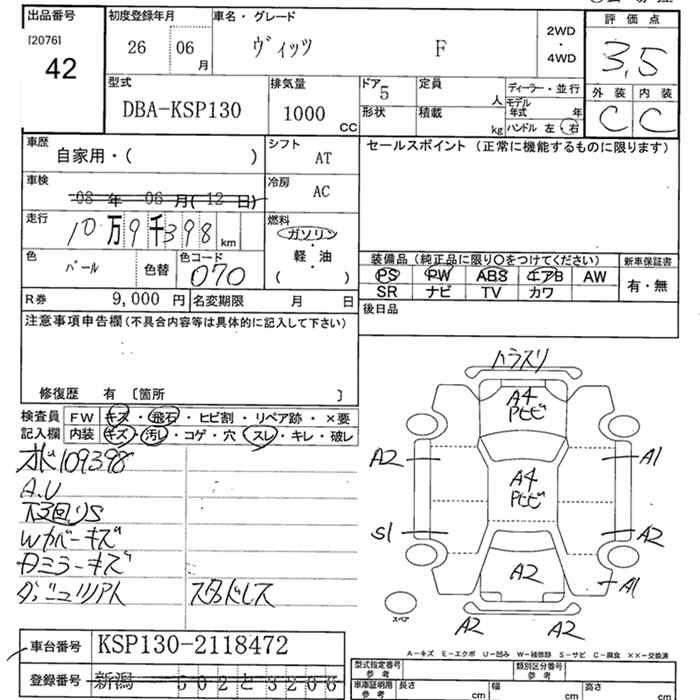 出品番号 初度登録年月 車名・グレード 評価点
[2076] 42
26 06 月 ヴィッツ F 2WD・4WD 3.5
型式 排気量 ドア 定員 ディーラー・並行 外装 内装
DBA-KSP130 1000 CC 5 人 モデル年式 年 C C
形状 積載 kg ハンドル 左・右
車歴 シフト セールスポイント (正常に機能するものに限ります)
自家用・( ) AT
車検 冷房
08 年 06 月 (12 日) AC
走行 燃料
10万9千398 km ガソリン・軽油・( )
色 パール 色替 色コード 070
装備品 (純正品に限り○をつけてください) 新車保証書
PS PW ABS エアB AW 有・無
SR ナビ TV カワ
R券 9,000 円 名変期限 月 日 後日品
注意事項申告欄 (不具合内容等は具体的に記入して下さい)
修復歴 有 〔箇所 〕
検査員 FW キズ・飛石・ヒビ割・リペア跡・×要
記入欄 内装 キズ・汚レ・コゲ・穴・スレ・キレ・破レ
109398
A.U
Wカバーキズ
Dミラーキズ
スタッドレス
ハラスリ
A4
PヒビA2 A1
A4
Pヒビ
S1 A2
A2
A1
スペア
A2 A2
A-キズ E-エクボ U-凹み W-補修跡 S-サビ C-腐食 ××-交換済
車台番号 KSP130-2118472
登録番号 新潟 502 と 3206
型式指定番号 参考 類別区分番号 参考
車庫証明用 参考 長さ cm 幅 cm 高さ cm